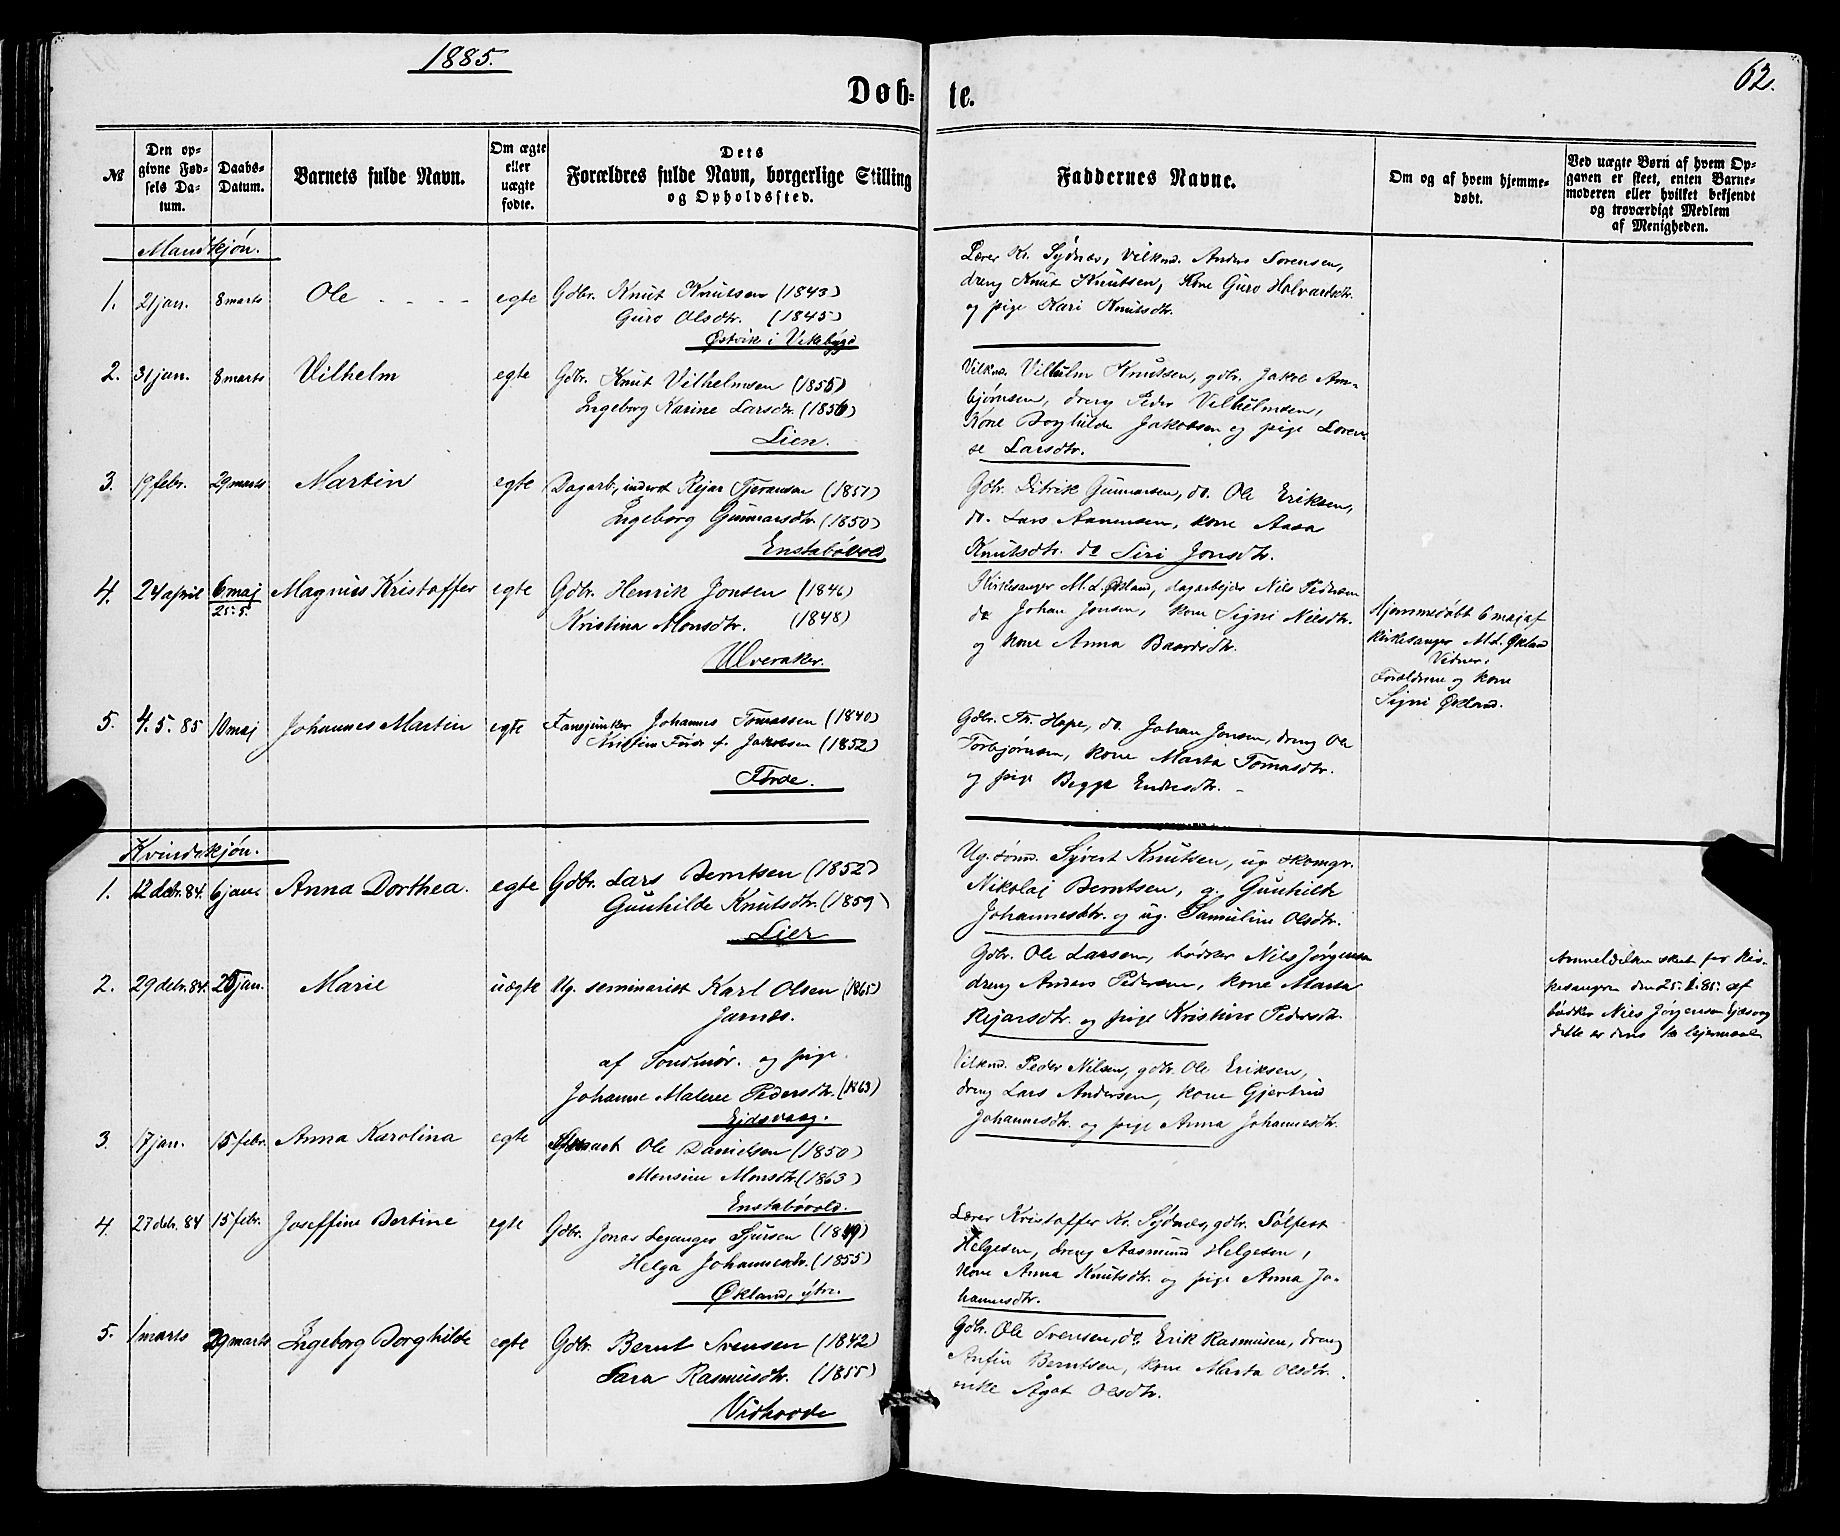 1885.
62.
Døb-
te.
№
Den op-
givne Fød-
sels Da-
tum.
Daabs-
Datum.
Barnets fulde Navn.
Om ægte
eller
uægte
fødte.
Dets
Forældres fulde Navn, borgerlige Stilling
og Opholdssted.
Faddernes Navne.
Om og af hvem hjemme-
døbt.
Ved uægte Børn af hvem Op-
gaven er skeet, enten Barne-
moderen eller hvilket bekjendt
og troværdigt Medlem
af Menigheden.
Mandkjøn.
1. 21 jan. 8 marts Ole - - - - egte
Gdbr. Knut Knutsen (1843)
Guro Olsdtr. (1845)
Østvik i Vikebygd
Lærer Kr. Sydnæs, Vilknd. Anders Sørensen,
dreng Knut Knutsen, Kone Guro Halvardsdtr.
og pige Kari Knutsdtr.
2. 31 jan. 8 marts Vilhelm egte
Gdbr. Knut Vilhelmsen (1855)
Ingeborg Karine Larsdtr. (1856)
Lien.
Vilknd. Vilhelm Knutsen, gdbr. Jakob Am-
bjørnsen, dreng Peder Vilhelmsen,
Kone Borghilde Jakobsen og pige Loren-
se Larsdtr.
3. 19 febr. 29 marts Martin egte
Dagarb., inderst Rejar Tjeransen (1857)
Ingeborg Gunnarsdtr. (1850)
Enstabøvold
Gdbr. Didrik Gunnarsen, do. Ole Eriksen,
do. Lars Aanensen, kone Aasa
Knutsdtr. do Siri Jonsdtr.
4. 24 april 6 maj Magnus Kristoffer egte
25.5.
Gdbr. Henrik Jonsen (1846)
Kristina Monsdtr. (1848)
Ulveraker.
Kirkesanger M. L. Økland, dagarbejder Nils Pedersen
do Johan Jonsen, kone Signi Nilsdtr.
og kone Anna Baardsdtr.
Hjemmedøbt 6 maj af
kirkesanger M. L. Økland
Vidner:
Forældrene og kone
Signi Økland.
5. 4. 5. 85 10 maj Johannes Martin egte
Fanejunker Johannes Tomassen (1840)
Kristine Førde f. Jakobsen (1852)
Førde.
Gdbr. Th. Hope, do. Johan Jonsen, dreng Ole
Torbjørnsen, kone Marta Tomasdtr.
og pige Begge Endresdtr. -
Kvindekjøn.
1. 12 debr. 84. 6 jan. Anna Dorthea. egte
Gdbr. Lars Berntsen (1852)
Gunhilde Knutsdtr. (1859)
Lier
Ug. tømd. Syvert Knutsen, ug. skomgr.
Nikolaj Berntsen, g. Gunhild
Johannesdtr. og ug. Samuline Olsdtr.
2. 29 debr. 84. 25 jan. Marie uægte
Ug. seminarist Karl Olsen (1865)
Jarnæs.
af Søndmør. og pige
Johanne Malene Pedersdtr. (1863)
Ejdsvaag.
Gdbr. Ole Larsen, bødker Nils Jørgensen
dreng Anders Pedersen, kone Marta
Rejarsdtr. og pige Kristine Pedersdtr.
Anmeldelsen skeet for kir-
kesangeren den 25. 1. 85. af
bødker Nils Jørgensen Ejdsvag
dette er dens 1ste lejermaal
3. 17 jan. 15 febr. Anna Karolina egte
Ole Danielsen (1850)
Monsine Monsdtr. (1863)
Enstabøvold.
Vilknd. Peder Nilsen, gdbr. Ole Eriksen,
dreng Lars Andersen, kone Gjertrud
Johannesdtr. og pige Anna Johannesdtr.
4. 27 debr. 84 15 febr. Joseffine Bertine egte
Gdbr. Jonas Leganger Sjursen (1849)
Helga Johannesdtr. (1855)
Økland, ytre.
Lærer Kristoffer Kr. Sydnæs, gdbr. Sølfest
Helgesen, dreng Aasmund Helgesen,
kone Anna Knutsdtr. og pige Anna Jo-
hannesdtr.
5. 1 marts 29 marts Ingeborg Borghilde egte
Gdbr. Bernt Svensen (1842)
Sara Rasmusdtr. (1855)
Vidhovde
Gdbr. Ole Svensen, do. Erik Rasmusen, dreng
Anfin Berntsen, kone Marta Olsdtr.
enke Ågot Olsdtr.